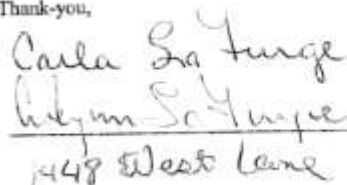 Thank-you,
Carla La Furge
La Furge
1448 West Lane